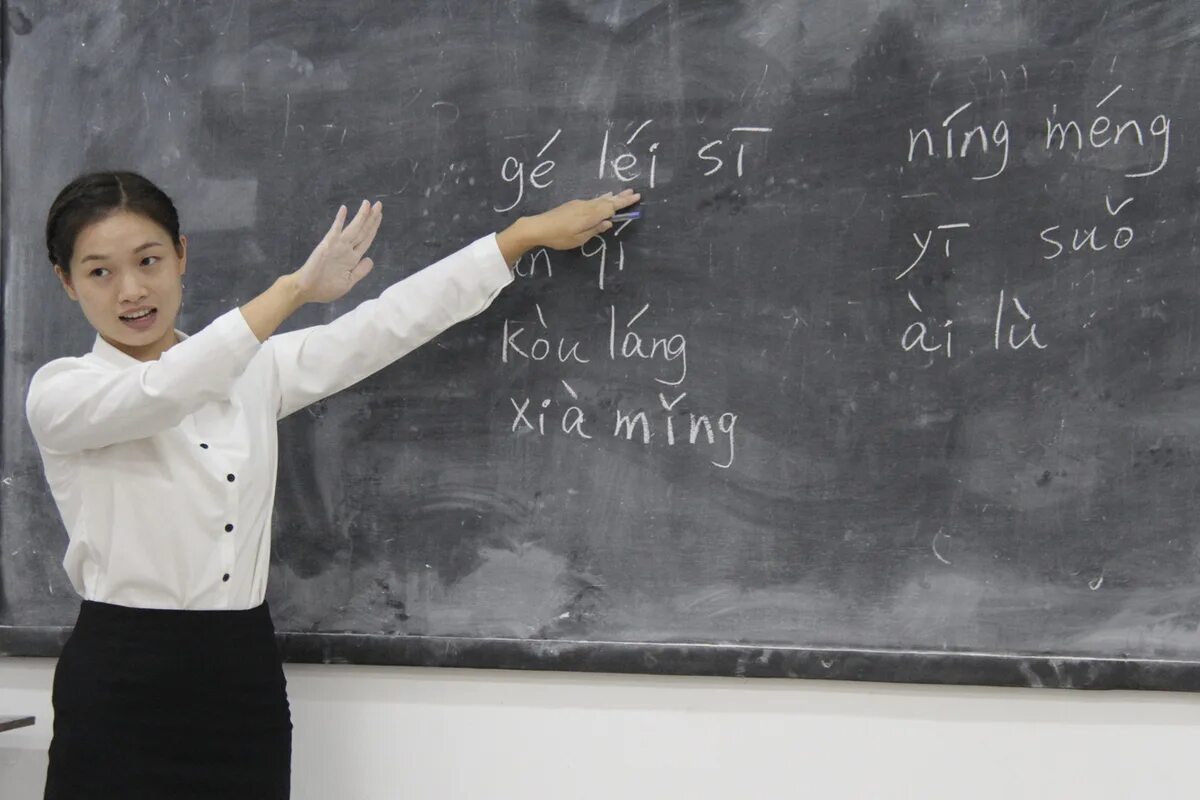 gé léi sī
qí
kòu láng
xià mǐng
níng méng
yī suǒ
ài lù